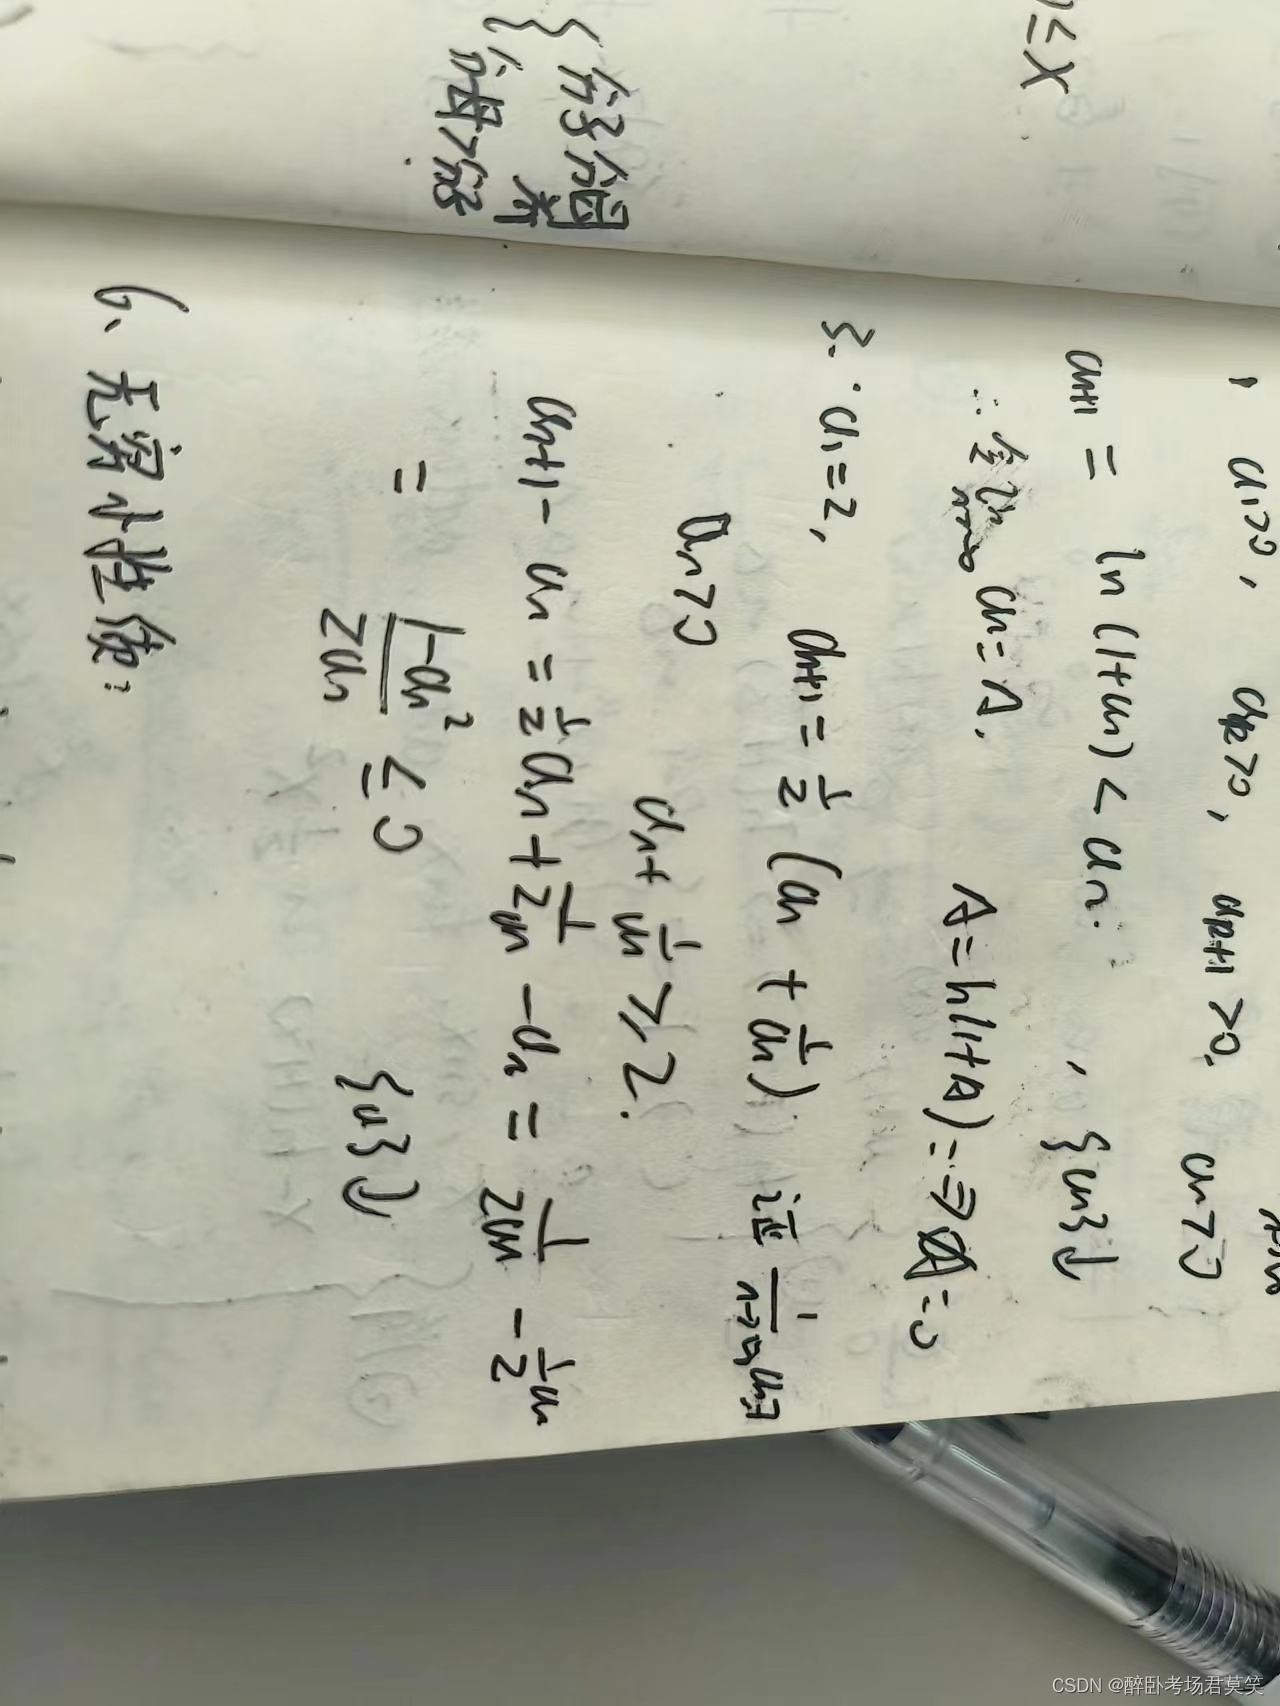 分子分母同
乘
分母>分子
≤X
a₁>0, aₖ>0, aₖ₊₁>0. aₙ>0
aₙ₊₁ = ln(1+aₙ) < aₙ. , {aₙ}↓
∴ 令 lim n→∞ aₙ=A. A=ln(1+A) => A=0
3. a₁=2, aₙ₊₁= 1/2 (aₙ + 1/aₙ) 证 lim n→∞ aₙ∃
aₙ>0 aₙ+ 1/aₙ ≥ 2.
aₙ₊₁ - aₙ = 1/2 aₙ + 1/2aₙ - aₙ = 1/2aₙ - 1/2 aₙ
= 1-aₙ²/2aₙ ≤ 0 {aₙ}↓
6、无穷小性质:
CSDN @醉卧考场君莫笑